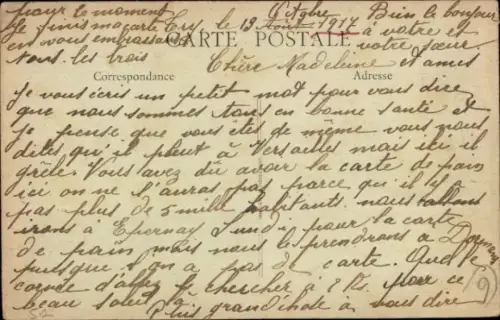 pour le moment
Je finis ma carte
en vous embrassant
tous les trois
le 13 Octobre 1917
Bien le bonjour
à votre et
votre sœur
CARTE POSTALE
Correspondance
Adresse
Chère Madeleine et amies
Je vous écris un petit mot pour vous dire
que nous sommes tous en bonne santé et
je pense que vous êtes de même vous nous
dites qu'il pleut à Versailles mais ici il
grêle. Vous avez dû avoir la carte de pain
ici on ne l'auras pas parce qu'il y a
pas plus de 5 mille habitants. nous
irons à Epernay pour la carte
de pain mais nous le prendrons à
puisque l'on a pas de carte. Quelle
corvée d'aller chercher à 8 K. par ce
beau soleil
Plus grand chose à vous dire